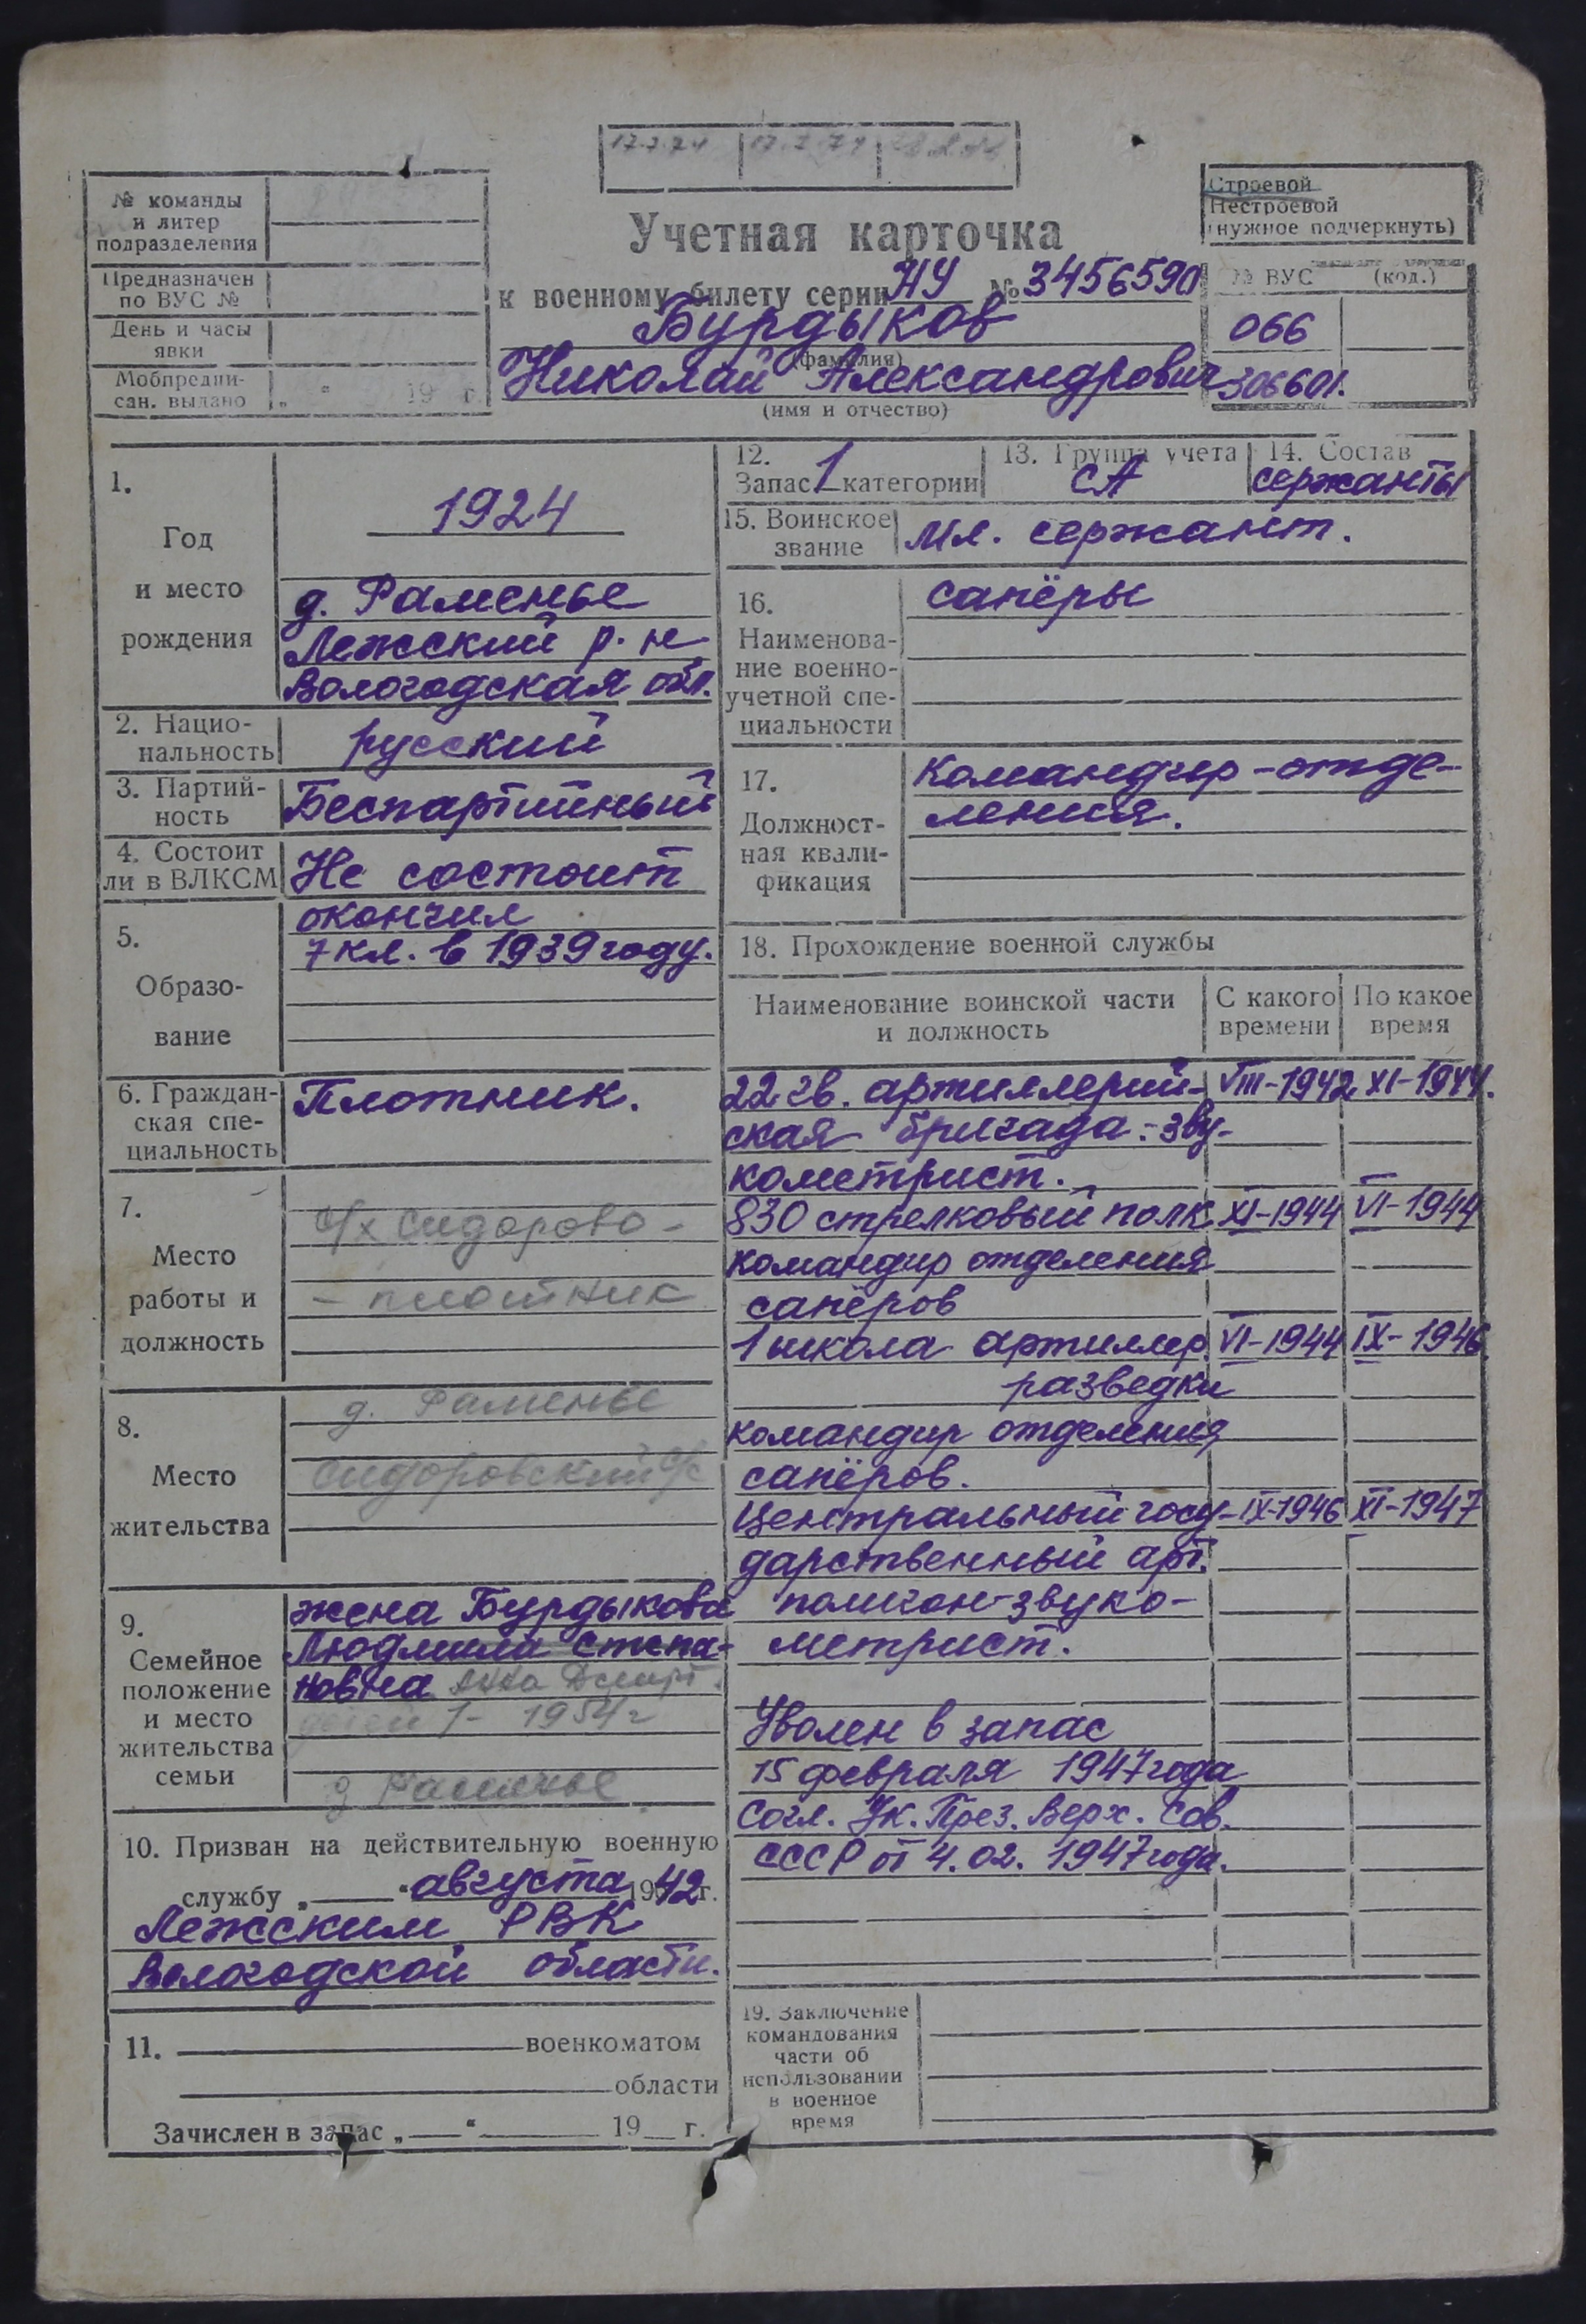 17.2.74 17.2.74
№ команды
и литер
подразделения
Предназначен
по ВУС №
День и часы
явки
Мобпредпи-
сан. выдано „ “ 19 г.
Учетная карточка
к военному билету серии НУ № 3456590
Бурдыков
(фамилия)
Николай Александрович
(имя и отчество)
Строевой
Нестроевой
(нужное подчеркнуть)
№ ВУС (код.)
066
306601.
1.
Год
и место
рождения
1924
д. Раменье
Лежский р-н
Вологодская обл.
2. Нацио-
нальность
русский
3. Партий-
ность
Беспартийный
4. Состоит
ли в ВЛКСМ
Не состоит
5.
Образо-
вание
окончил
7 кл. в 1939 году.
6. Граждан-
ская спе-
циальность
Плотник.
7.
Место
работы и
должность
с/х Сидорово -
- плотник
8.
Место
жительства
д. Раменье
Сидоровский с/с
9.
Семейное
положение
и место
жительства
семьи
жена Бурдыкова
Людмила Степа-
новна Анна
детей 1- 1954 г
д Раменье
10. Призван на действительную военную
службу „ “ августа 1942 г.
Лежским РВК
Вологодской области.
11. военкоматом
области
Зачислен в запас „ “ 19 г.
12.
Запас 1 категории
13. Группа учета
СА
14. Состав
сержанты
15. Воинское
звание
Мл. сержант.
16.
Наименова-
ние военно-
учетной спе-
циальности
сапёры
17.
Должност-
ная квали-
фикация
Командир-отде-
ления.
18. Прохождение военной службы
Наименование воинской части
и должность
С какого
времени
По какое
время
22 гв. артиллерий- VIII-1942 XI-1944.
ская бригада.- зву-
кометрист.
830 стрелковый полк XI-1944 VI-1944
командир отделения
сапёров
1 школа артиллер. VI-1944 IX-1946
разведки
командир отделения
сапёров.
Центральный госу- IX-1946 XI-1947
дарственный арт.
полигон-звуко-
метрист.
Уволен в запас
15 февраля 1947 года
Согл. Ук. През. Верх. Сов.
СССР от 4.02. 1947 года.
19. Заключение
командования
части об
использовании
в военное
время